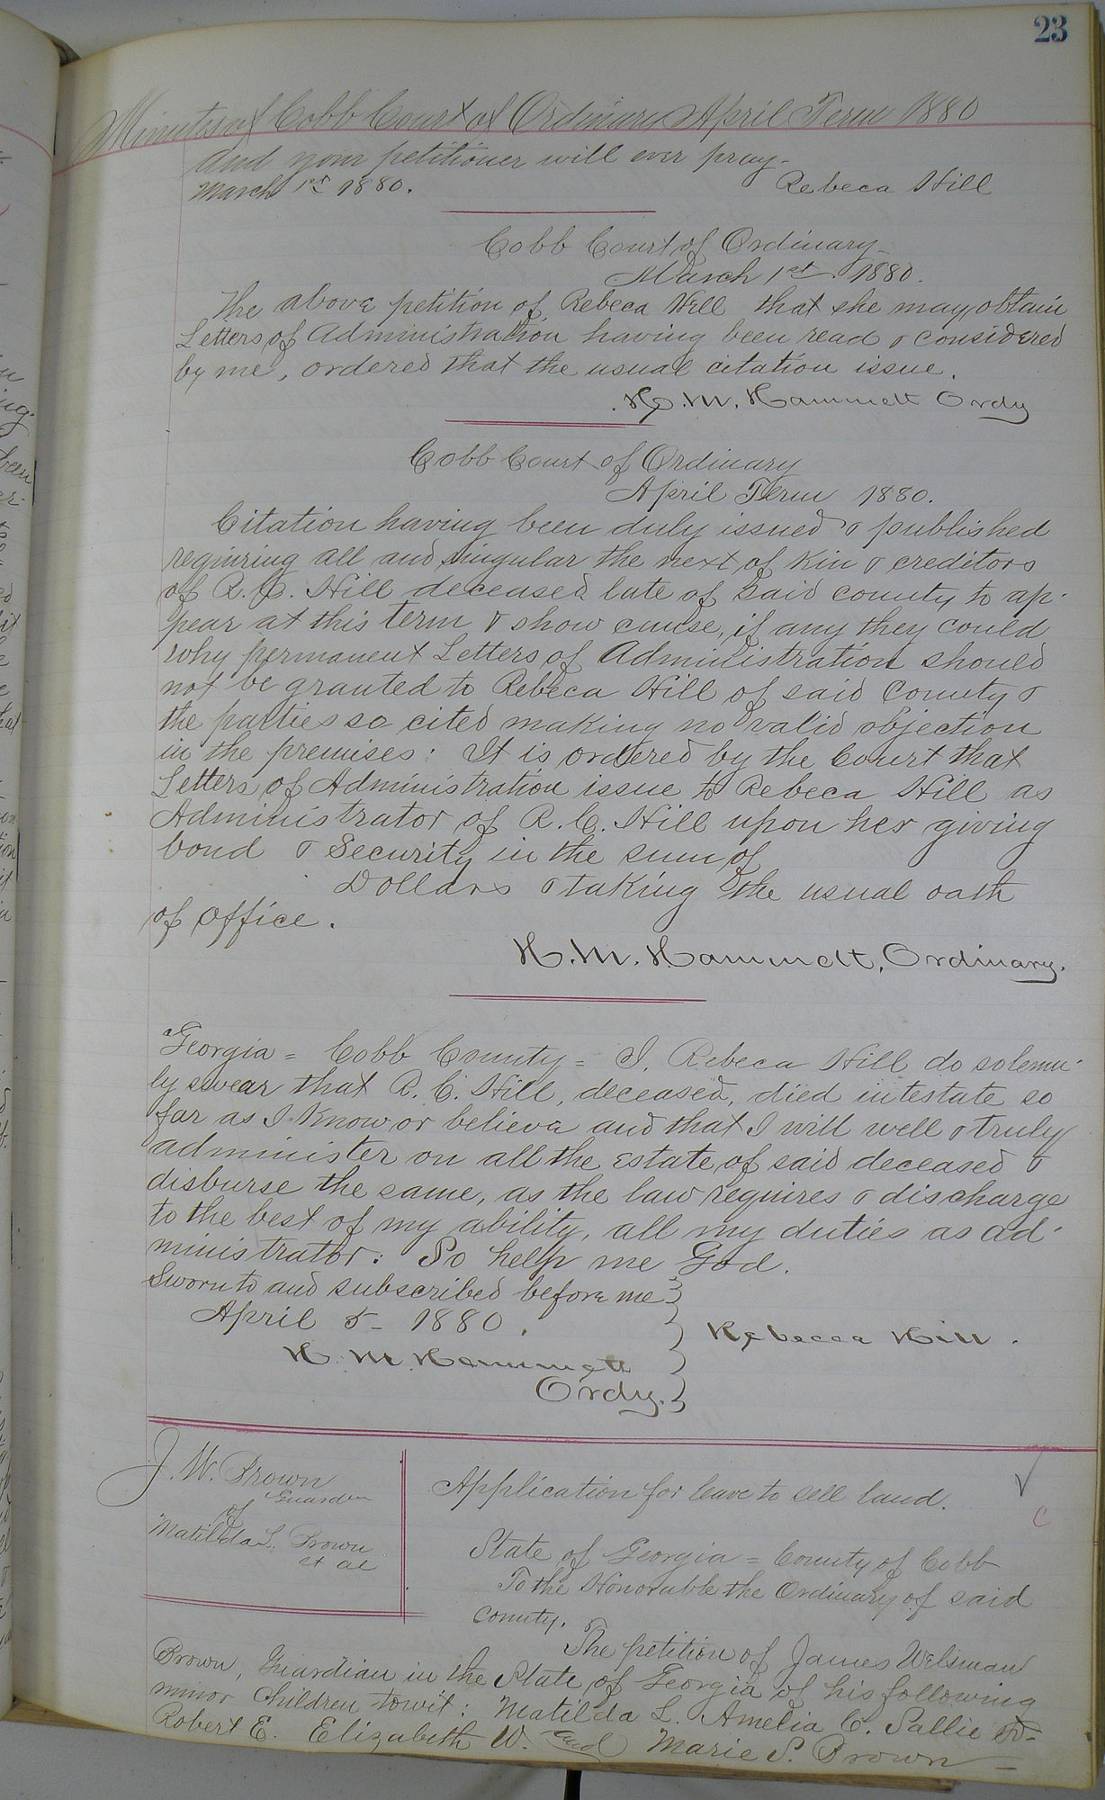 23
Minutes of Cobb Court of Ordinary April Term 1880
and your petitioner will ever pray-
March 1st 1880. Rebeca Hill
Cobb Court of Ordinary-
March 1st 1880.
The above petition of Rebeca Hill that she may obtain
Letters of Administration having been read & considered
by me, ordered that the usual citation issue.
H. M. Hammett Ordy
Cobb Court of Ordinary
April Term 1880.
Citation having been duly issued & published
requiring all and singular the next of Kin & creditors
of R. C. Hill deceased late of said county to ap-
pear at this term & show cause, if any they could
why permanent Letters of Administration should
not be granted to Rebeca Hill of said County &
the parties so cited making no valid objection
in the premises: It is ordered by the Court that
Letters of Administration issue to Rebeca Hill as
Administrator of R. C. Hill upon her giving
bond & Security in the sum of
Dollars & taking the usual oath
of office.
H. M. Hammett, Ordinary.
Georgia = Cobb County = I, Rebeca Hill do solemn-
ly swear that R. C. Hill, deceased, died intestate so
far as I know or believe and that I will well & truly
administer on all the estate of said deceased &
disburse the same, as the law requires & discharge
to the best of my ability, all my duties as ad-
ministrator: So help me God.
Sworn to and subscribed before me
April 5- 1880. Rebecca Hill.
H. M. Hammett
Ordy.
J. W. Brown
Guardian
of
Matilda L. Brown
et al
Application for leave to sell land.
C
State of Georgia = County of Cobb
To the Honorable the Ordinary of said
County.
The petition of James Welsman
Brown, Guardian in the State of Georgia of his following
minor children towit: Matilda L. Amelia C. Sallie
Robert E. Elizabeth W. and Marie S. Brown